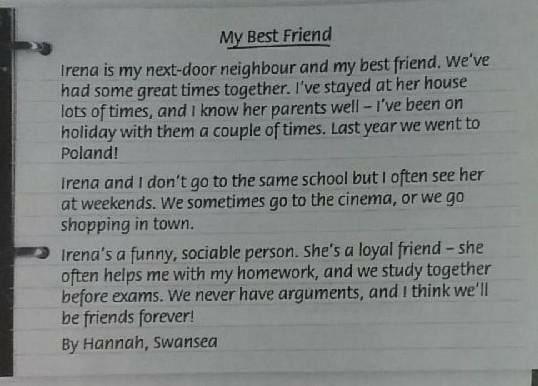 My Best Friend
Irena is my next-door neighbour and my best friend. We've
had some great times together. I've stayed at her house
lots of times, and I know her parents well – I've been on
holiday with them a couple of times. Last year we went to
Poland!
Irena and I don't go to the same school but I often see her
at weekends. We sometimes go to the cinema, or we go
shopping in town.
Irena's a funny, sociable person. She's a loyal friend – she
often helps me with my homework, and we study together
before exams. We never have arguments, and I think we'll
be friends forever!
By Hannah, Swansea